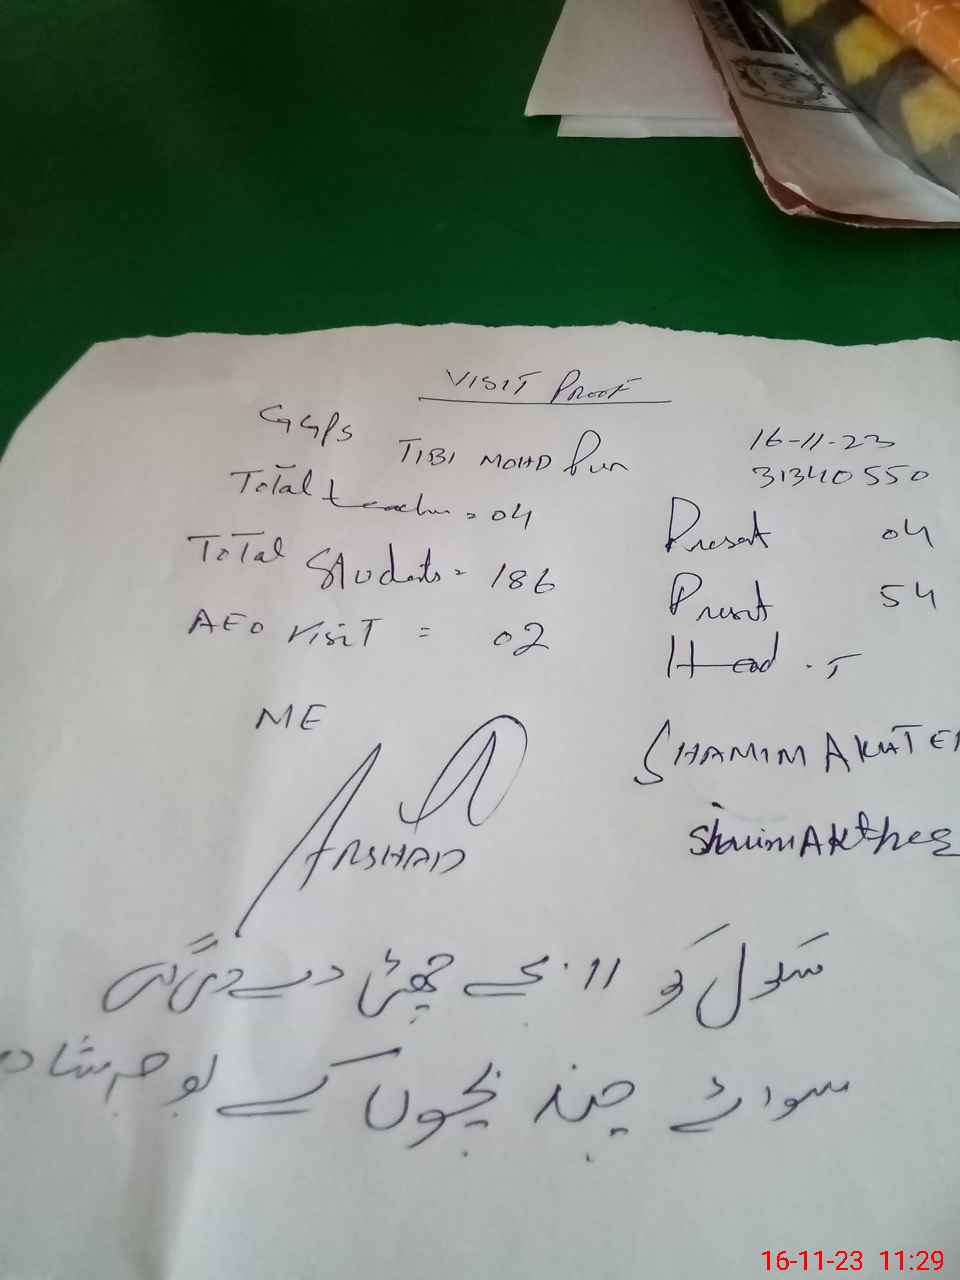 VISIT PROOF
GGPS TIBI MOHD Pur 16-11-23
31340550
Total teacher = 04 Present 04
Total Students = 186 Present 54
AEO Visit = 02 Head . T
ME SHAMIM AKHTER
ARSHAD ShamimAkhter
سکول کو 11 بجے چھٹی دے دی گئی
سوائے چند بچوں کے بوجہ شاد
16-11-23 11:29